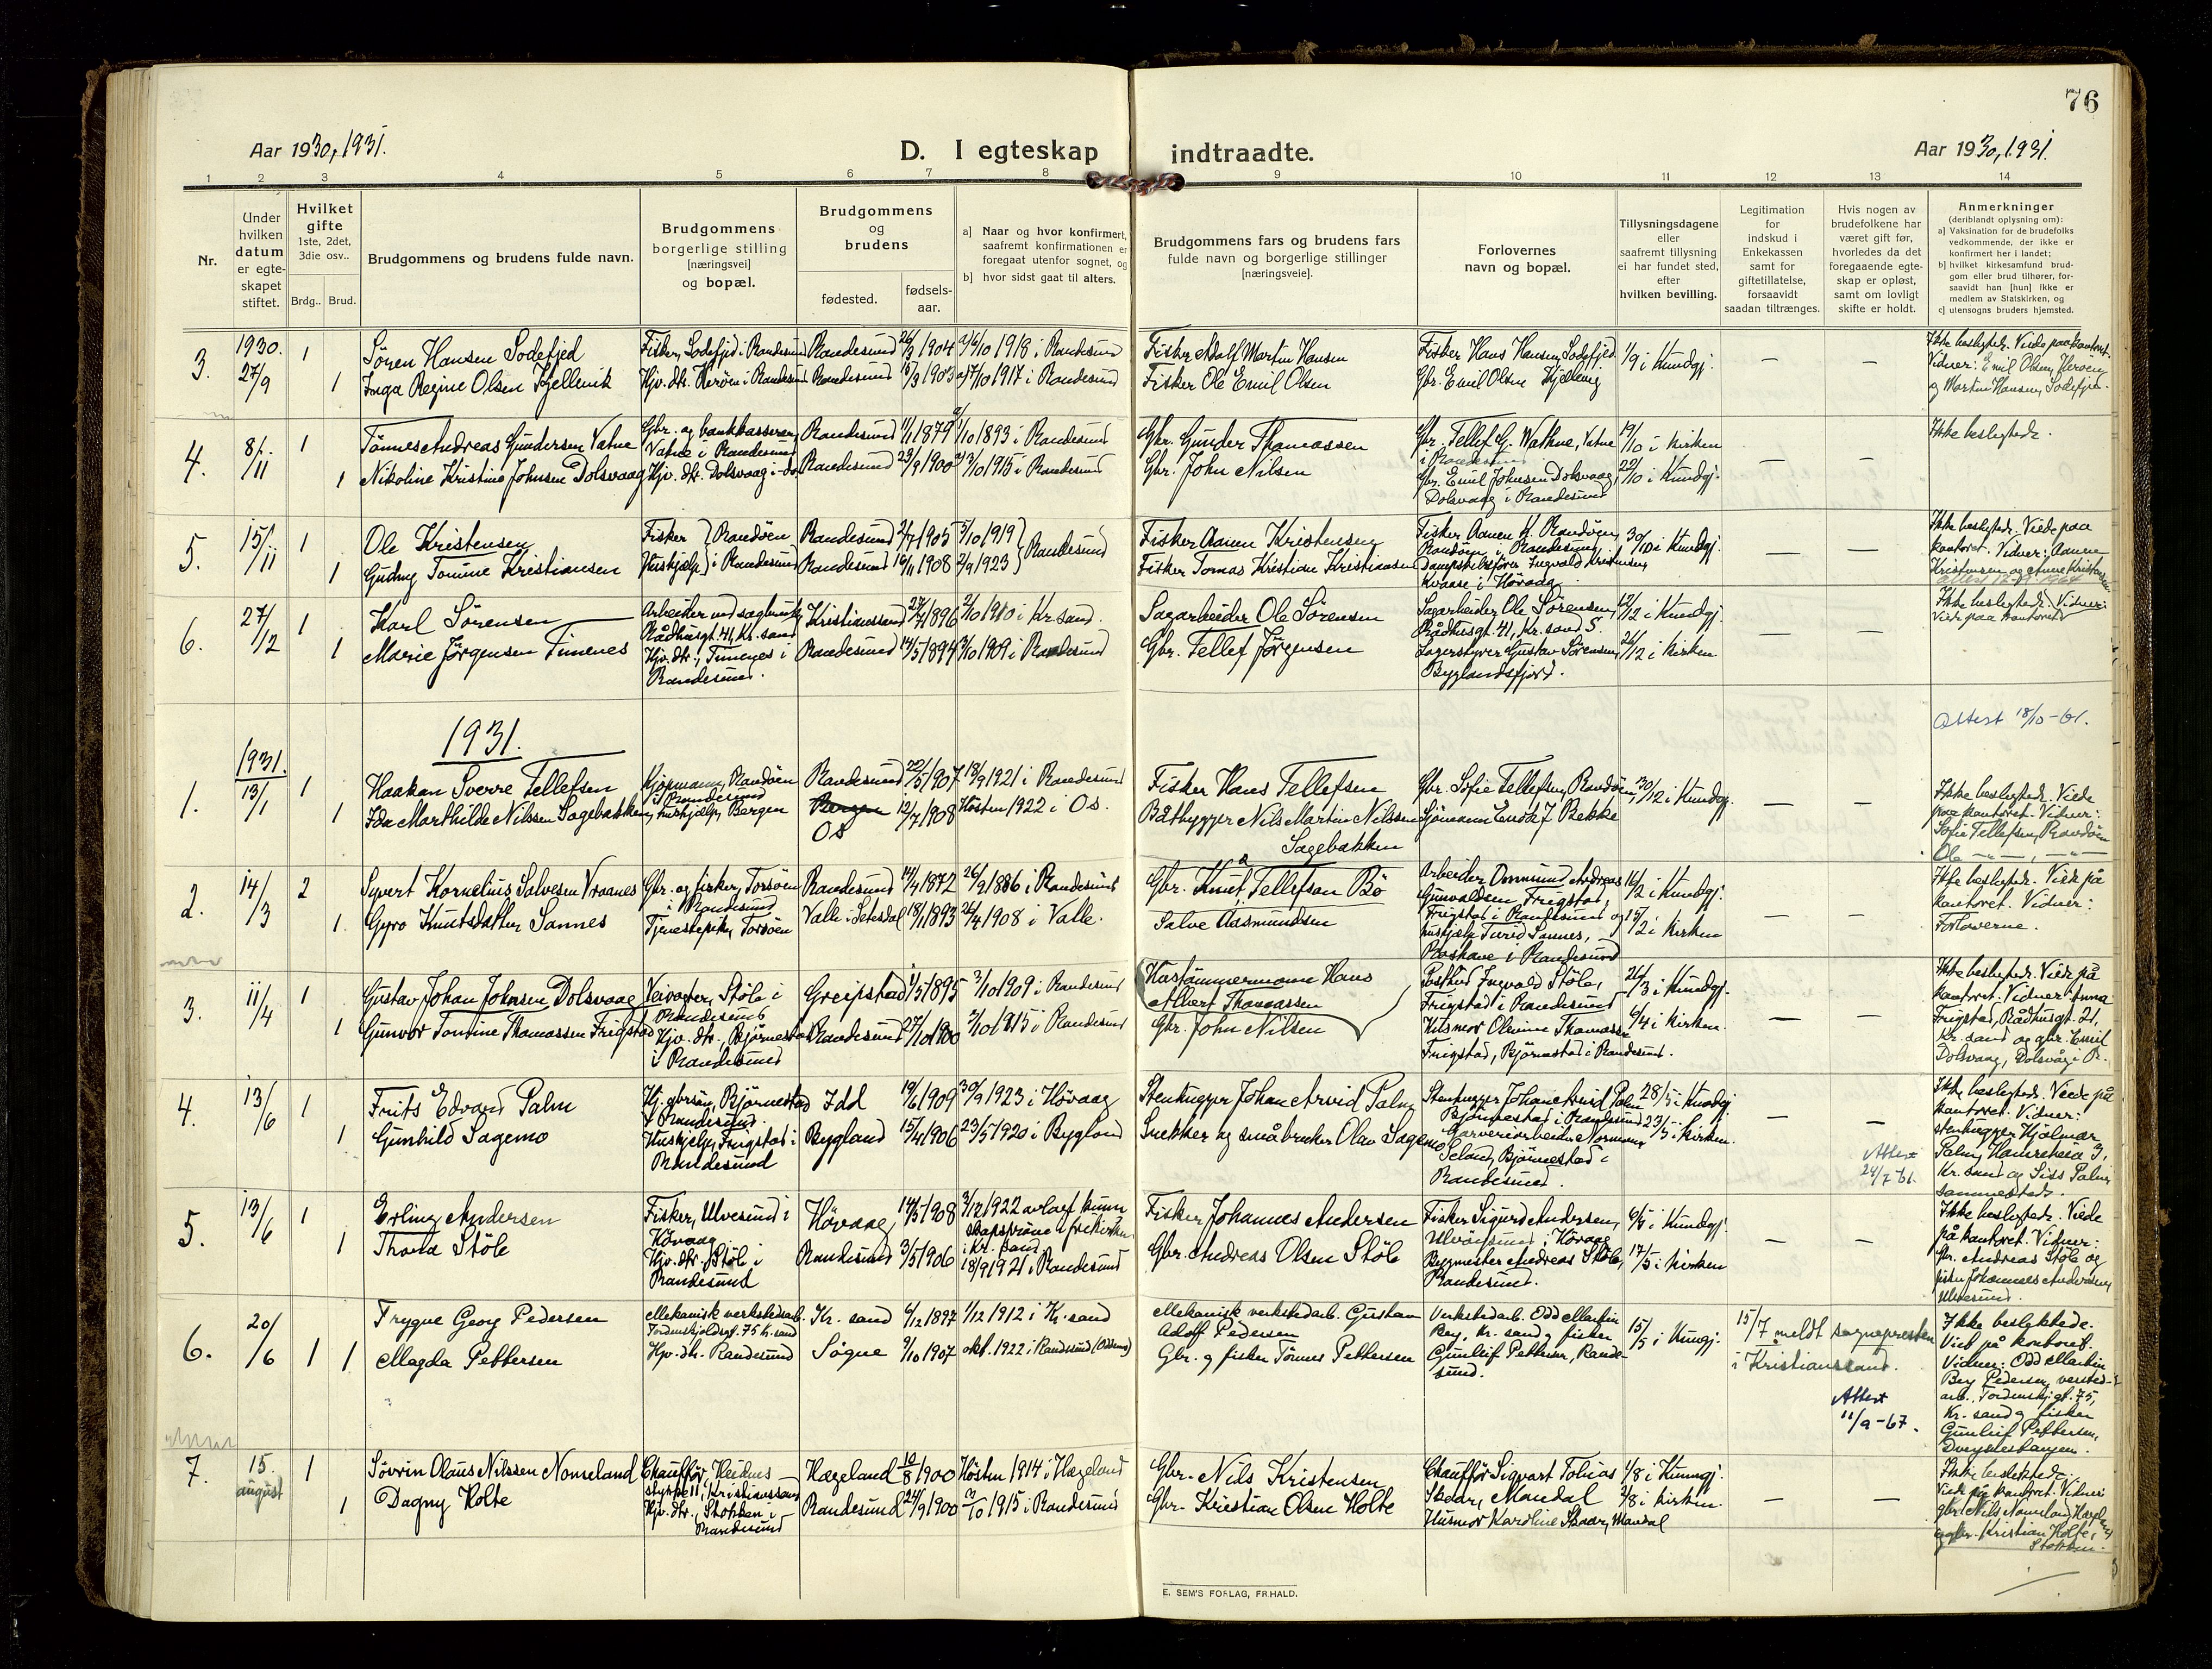 76
Aar 1930, 1931.
D. I egteskap indtraadte.
Aar 1930, 1931.
1 2 3 4 5 6 7 8 9 10 11 12 13 14
Nr.
Under hvilken datum er egte-skapet stiftet.
Hvilket gifte 1ste, 2det, 3die osv..
Brdg.. Brud.
Brudgommens og brudens fulde navn.
Brudgommens borgerlige stilling [næringsvei] og bopæl.
Brudgommens og brudens
fødested.
fødsels-aar.
a] Naar og hvor konfirmert, saafremt konfirmationen er foregaat utenfor sognet, og
b] hvor sidst gaat til alters.
Brudgommens fars og brudens fars fulde navn og borgerlige stillinger [næringsveie].
Forlovernes navn og bopæl.
Tillysningsdagene eller saafremt tillysning ei har fundet sted, efter hvilken bevilling.
Legitimation for indskud i Enkekassen samt for giftetillatelse, forsaavidt saadan tiltrænges.
Hvis nogen av brudefolkene har været gift før, hvorledes da det foregaaende egte-skap er opløst, samt om lovligt skifte er holdt.
Anmerkninger (deriblandt oplysning om):
a] Vaksination for de brudefolks vedkommende, der ikke er konfirmert her i landet;
b] hvilket kirkesamfund brud-gom eller brud tilhører, for-saavidt han [hun] ikke er medlem av Statskirken, og
c] utensogns bruders hjemsted.
3. 1930. 27/9 1 Søren Hansen Sodefjed Fisker, Sodefjed i Randesund Randesund 26/3 1904 a) 6/10 1918 i Randesund Fisker Adolf Martin Hansen Fisker Hans Hansen, Sodefjed. 1/9 i Kundgj. — — Ikke beslegtede. Viede paa kontoret.
1 Inga Regine Olsen Kjellevik Hjv. dtr. Herøen i Randesund Randesund 1903 a) 7/10 1917 i Randesund Fisker Ole Emil Olsen Gbr. Emil Olsen Vidner: Emil Olsen, Herøen
og Martin Hansen, Sodefjed.
4. 8/11 1 Tønnes Andreas Gundersen Vatne Gbr. og bankkasserer, Vatne i Randesund Randesund 1/11 1879 1/10 1893 i Randesund Gbr. Gunder Thomassen Gbr. Tellef G. Wathne, Vatne i Randesund 19/10 i kirken — — Ikke beslegtede.
1 Nikoline Kristine Johnsen Dolsvaag Hjv. dtr. Dolsvaag i do Randesund 23/9 1900 3/10 1915 i Randesund Gbr. John Nilsen Gbr. Emil Johnsen Dolsvaag, Dolsvaag i Randesund 22/10 i Kundgj.
5. 15/11 1 Ole Kristensen Fisker Randøen Randesund 2/7 1905 5/10 1919 Randesund Fisker Aanen Kristensen Fisker Aanen K. Randøen, Randøen i Randesund 30/10 i Kundgj. — — Ikke beslegtede. Viede paa
1 Gudny Tomine Kristiansen Huskjælp i Randesund Randesund 16/11 1908 2/9 1923 Fisker Tomas Kristian Kristiansen Dampskibsfører Ingvald Kristensen, Kvaase i Høvaag. kontoret. Vidner: Aanen
Kristensen og Anne Kristensen
6. 27/12 1 Karl Sørensen Arbeider ved sagbruk, Rådhusgt. 41, Kr. sand Kristianssand 1896 2/10 1910 i Kr. sand. Sagarbeider Ole Sørensen Sagarbeider Ole Sørensen, Rådhusgt. 41, Kr. sand S. 12/12 i Kundgj. — — Ikke beslegtede. Vidner:
1 Marie Jørgensen Timenes Hjv. dtr., Timenes i Randesund. Randesund 14/5 1894 3/10 1909 i Randesund Gbr. Tellef Jørgensen Lagerstyrer Gustav Sørensen, Byglandsfjord. 26/12 i kirken Viede paa kontoret
1931.
Attest 18/10-61.
1. 1931. 13/1 1 Haakon Sverre Tellefsen Kjøpmann, Randøen i Randesund Randesund 22/5 1907 18/9 1921 i Randesund Fisker Hans Tellefsen Gbr. Sofie Tellefsen, Randøen, 30/12 i Kundgj. — — Ikke beslegtede. Viede
1 Ida Marthilde Nilssen Sagebakken, huskjælp, Bergen Bergen Os 12/7 1908 Høsten 1922 i Os. Båtbygger Nils Martin Nilssen Sagebakken Sjømann Bekke paa kontoret. Vidner:
Sofie Tellefsen, Randøen
Ole
2. 14/3 2 Syvert Kornelius Salvesen Vraanes Gbr. og fisker, Torsøen i Randesund Randesund 14/4 1872 26/9 1886 i Randesund Gbr. Knut Tellefsen Bø Arbeider Ommund Andreas Gunvaldsen, Frigstad, Frigstad i Randesund og 16/2 i Kundgj. — — Ikke beslegtede. Viede på
1. Gyro Knutsdatter Sannes Tjenestepike, Torsøen Valle i Setesdal 18/11 1893 26/4 1908 i Valle. Salve Aasmundsen huskjælp Turid Sannes, i Randesund 15/2 i kirken kontoret. Vidner:
Forloverne.
3. 11/4 1 Gustav Johan Johnsen Dolsvaag Veivogter, Støle i Randesund Greipstad 1/5 1895 3/10 1909 i Randesund Hustømmermann Hans Albert Thomassen Posthud Ingvald Støle, Frigstad i Randesund 26/3 i Kundgj. — — Ikke beslegtede. Viede på
1 Gunvor Tomine Thomassen Frigstad Hjv. dtr., Bjørnestad i Randesund Randesund 27/10 1900 3/10 1915 i Randesund Gbr. John Nilsen Husmor Thomassen Frigstad, Bjørnestad i Randesund. 6/4 i kirken. kontoret. Vidner: Anna
Frigstad, Rådhusgt. 21,
Kr. sand og gbr. Emil
Dolsvaag, Dolsvåg i R.
4. 13/6 1 Frits Edvard Palm Hj. gbrsøn, Bjørnestad i Randesund. Idd 19/6 1909 30/9 1923 i Høvaag Stenhugger Johan Arvid Palm Stenhugger Johan Arvid Palm Bjørnestad i Randesund 28/5 i Kundgj. — — Ikke beslegtede. Viede på
1 Gunhild Sagemo Huskjelp, Frigstad i Randesund Bygland 15/4 1906 23/5 1920 i Bygland Snekker og småbruker Olav Sagemo Garveriarbeider Normann Seland, Bjørnestad i Randesund. 23/5 i kirken. kontoret. Vidner:
stenhugger Hjalmar
Palm, Hamreheia 3,
Kr. sand og Siss Palm,
sammesteds.
Attest 24/7 61.
5. 13/6 1 Erling Andersen Fisker, Ulvesund i Høvaag Høvaag 14/5 1908 3/12 1922 avlagt kunn-skapsprøve i frikirken i Kr. sand Fisker Johannes Andersen Fisker Sigurd Andersen, i Høvaag i Kundgj. — — Ikke beslegtede. Viede
1 Thora Støle Hjv. dtr., Støle i Randesund Randesund 3/5 1906 18/9 1921 i Randesund Gbr. Andreas Olsen Støle Bygmester Andreas Støle, Randesund. 17/5 i kirken på kontoret. Vidner:
Gbr. Andreas Støle og
fisker Johannes Andersen,
Ulvesund.
6. 20/6 1 Trygve Georg Pedersen Mekanisk verkstedsarb. Tordenskjoldsgt. 75 Kr. sand Kr. sand 6/12 1897 1/12 1912 i Kr. sand Mekanisk verkstedarb. Gustav Adolf Pedersen Verkstedarb. Odd Martin Berg, Kr. sand og fisker 15/5 i Kungj. 15/7 meldt sognepresten i Kristianssand. Ikke beslektede.
1 Magda Pettersen Hjv. dtr. Randesund Søgne 9/10 1907 okt. 1922 i Randesund (Oddernes) Gbr. og fisker Tønnes Pettersen Gunleif Pettersen, Rande-sund. Vied på kontoret.
Vidner: Odd Martin
Berg Pedersen, verksted-
arb. Tordenskj.gt. 75,
Kr. sand og fisker
Gunleif Pettersen,
Dvergsnestangen.
Attest 11/9-67.
7. 15. august 1 Søvrin Olaus Nilssen Nomeland Chauffør, Kristianssand Hægeland 10/8 1900 Høsten 1914 i Hægeland Gbr. Nils Kristensen Chauffør Sigvart Tobias Skaar, Mandal 1/8 i Kunngj. — — Ikke beslektede.
1 Dagny Holte Hjv. dtr., Stokken i Randesund Randesund 24/9 1900 3/10 1915 i Randesund Gbr. Kristian Olsen Holte Husmor Karoline Skaar, Mandal 2/8 i kirken. Viede på kontoret. Vidner:
gbr. Nils Nomeland, Hægeland
og gbr. Kristian Holte,
Stokken.
E. SEM'S FORLAG, FR.HALD.